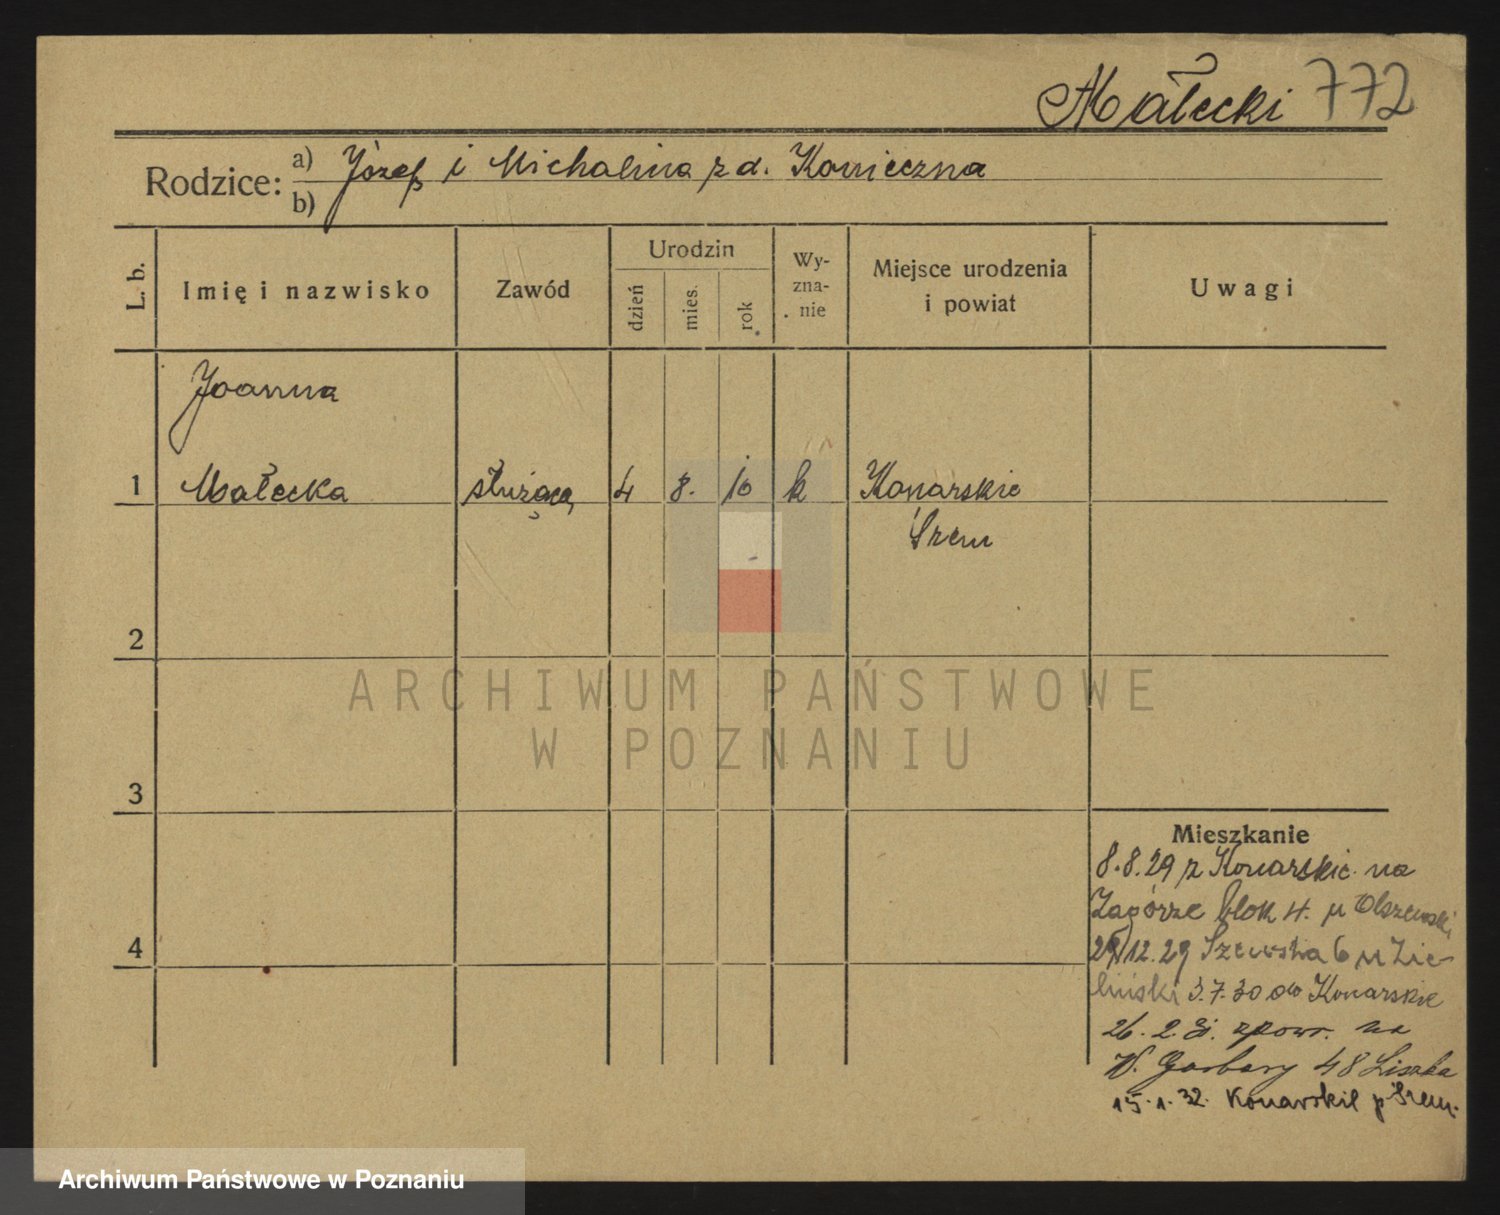 Małecki 772
Rodzice: a) Józef i Michalina z d. Konieczna
b)
L. b.
Imię i nazwisko
Zawód
Urodzin
dzień
mies.
rok
Wy-
zna-
nie
Miejsce urodzenia
i powiat
Uwagi
Joanna
1 Małecka służąca 4 8. 10 k Konarskie
Śrem
2
3
4
Mieszkanie
8.8.29 z Konarskie na
Zagórze blok 4. u Olszewski
12.29 Szewska 6 u Zie-
liński 3.7.30 do Konarskie
26.2.31. zpowr. na
W. Garbary 48 Liszka
15.1.32. Konarskie p Śrem.
ARCHIWUM PAŃSTWOWE
W POZNANIU
Archiwum Państwowe w Poznaniu